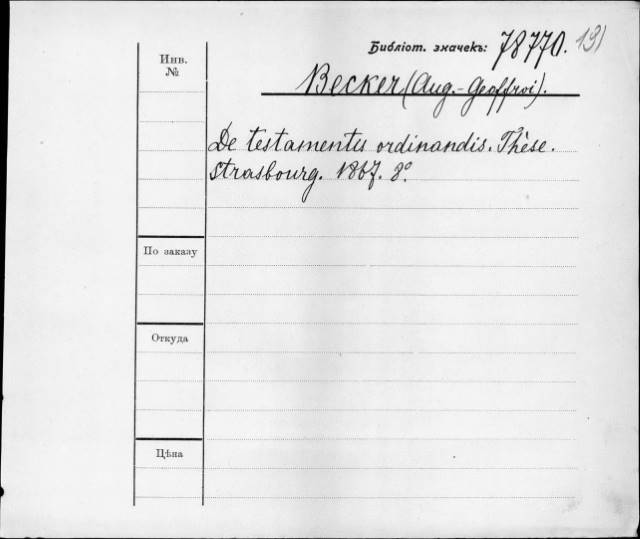 Библіот. значекъ: 78770. 131
Инв. №
Becker (Aug.-Geoffroi).
De testamentis ordinandis. Thèse.
Strasbourg. 1867. 8º.
По заказу
Откуда
Цѣна